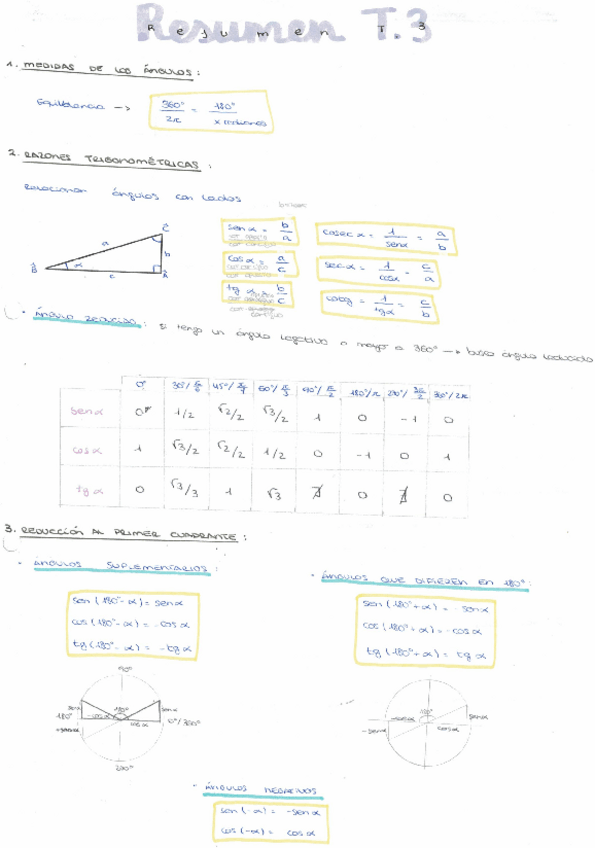 Resumen T.3
Resumen T.3
1. MEDIDAS DE LOS ÁNGULOS:
Equivalencia --> 360°/2π = 180°/x radianes
2. RAZONES TRIGONOMÉTRICAS:
Relacionan ángulos con lados
sen α = b/a cosec α = 1/sen α = a/b
cos α = a/c sec α = 1/cos α = c/a
tg α = b/c cotg = 1/tg α = c/b
Ĉ
a
b
B̂ α
c
Â
· ÁNGULO REDUCIDO: si tengo un ángulo negativo o mayor a 360° --> busco ángulo reducido
0° 30°/π/6 45°/π/4 60°/π/3 90°/π/2 180°/π 270°/3π/2 360°/2π
sen α 0 1/2 √2/2 √3/2 1 0 -1 0
cos α 1 √3/2 √2/2 1/2 0 -1 0 1
tg α 0 √3/3 1 √3 ∄ 0 ∄ 0
3. REDUCCIÓN AL PRIMER CUADRANTE:
· ÁNGULOS SUPLEMENTARIOS:
sen (180° - α) = sen α
cos (180° - α) = - cos α
tg (180° - α) = - tg α
90°
sen α 180° sen α
180° - cos α cos α 0°/360°
- sen α
270°
· ÁNGULOS QUE DIFIEREN EN 180°:
sen (180° + α) = - sen α
cos (180° + α) = - cos α
tg (180° + α) = tg α
180° sen α
- cos α
- sen α cos α
· ÁNGULOS NEGATIVOS
sen (-α) = - sen α
cos (-α) = cos α